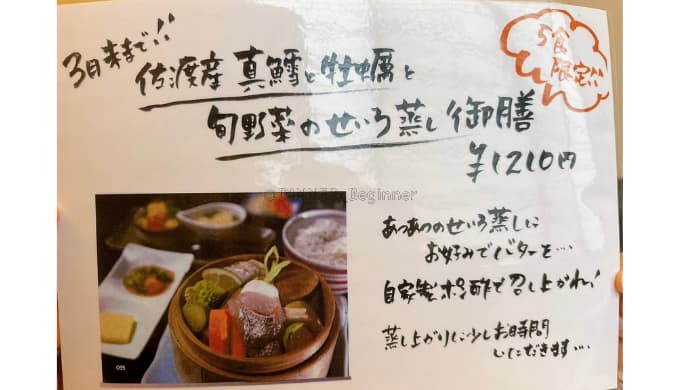 3月末まで!!
5食
限定!!
佐渡産 真鱈と牡蠣と
旬野菜のせいろ蒸し御膳
¥1210円
Beginner
あつあつのせいろ蒸しに
お好みでバターを…
自家製ポン酢で召し上がれ!
蒸し上がりに少しお時間
いただきます…